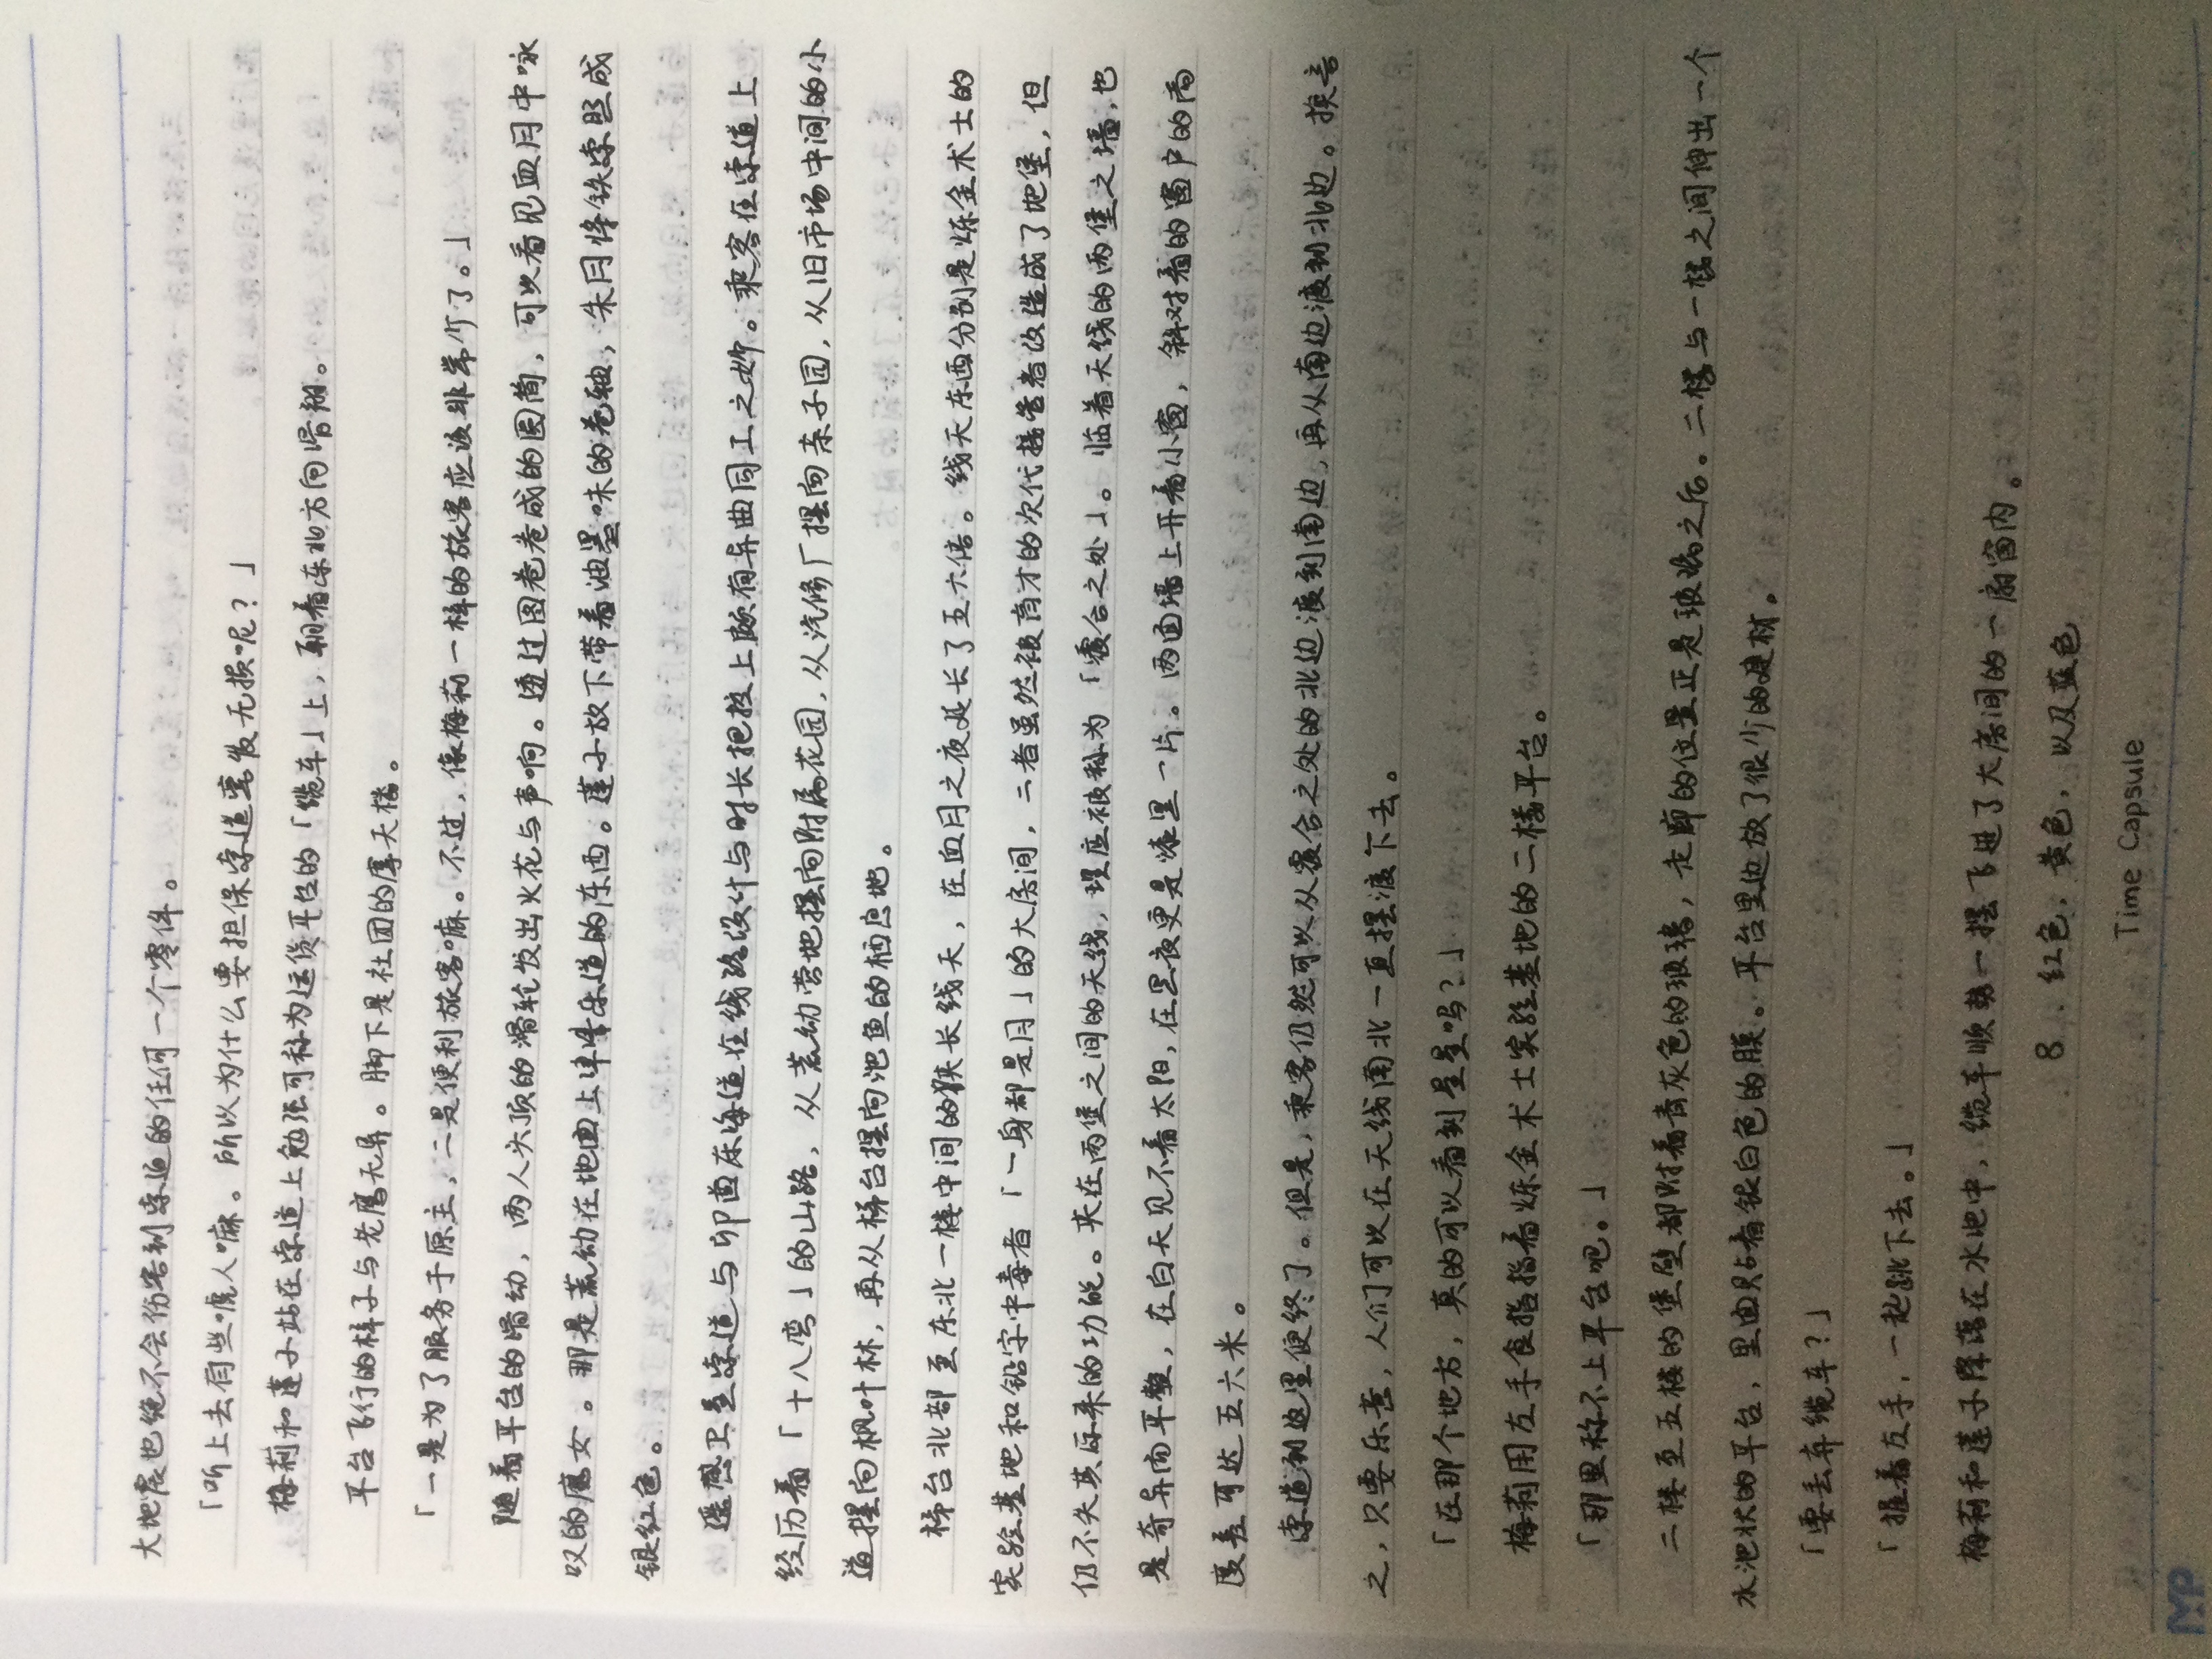 大地震也绝不会伤害到索道的任何一个零件。
「听上去有些唬人嘛。所以为什么要担保索道毫发无损呢？」
梅莉和莲子站在索道上勉强可称为运货平台的「缆车」上，朝着东北方向滑翔。
平台飞行的样子与老鹰无异。脚下是社团的摩天楼。
「一是为了服务于原主，二是便利旅客嘛。不过，像梅莉一样的旅客应该非常少了。」
随着平台的滑动，两人头顶的滑轮发出火花与声响。透过图卷卷成的圆筒，可以看见血月中咏
叹的魔女。那是荒幼在地面上津津乐道的东西。莲子放下带着油墨味的卷轴，朱月将铁索照成
银红色。
遥感卫星索道与卯酉东海道在线路设计与时长把控上颇有异曲同工之妙。乘客在索道上
经历着「十八弯」的山路，从荒幼营地摆向附属花园，从汽修厂摆向亲子园，从旧市场中间的小
道摆向枫叶林，再从梯台摆向池鱼的栖息地。
梯台北部至东北一楼中间的狭长线天，在血月之夜延长了五六倍。线天东西分别是炼金术士的
实验基地和铅字中毒者「一身都是月」的大房间，二者虽然被育才的次代接管者改造成了地堡，但
仍不失其原来的功能。夹在两堡之间的天线，理应被称为「覆合之处」。临着天线的两堡之墙，也
是奇异而平整，在白天见不着太阳，在黑夜更是漆黑一片。两面墙上开着小窗，斜对着的窗户的高
度差可达五六米。
索道到这里便终了。但是，乘客仍然可以从覆合之处的北边渡到南边，再从南边渡到北边。换言
之，只要乐意，人们可以在天线南北一直摆渡下去。
「在那个地方，真的可以看到星星吗？」
梅莉用左手食指指着炼金术士实验基地的二楼平台。
「那里称不上平台吧。」
二楼至五楼的堡壁都附着青灰色的玻璃，走廊的位置正是玻璃之后。二楼与一楼之间伸出一个
水池状的平台，里面贴着银白色的膜。平台里边放了很少的建材。
「要丢弃缆车？」
「握着左手，一起跳下去。」
梅莉和莲子降落在水池中，缆车顺势一摆飞进了大房间的一扇窗内。
8．红色，黄色，以及蓝色
Time Capsule
MP